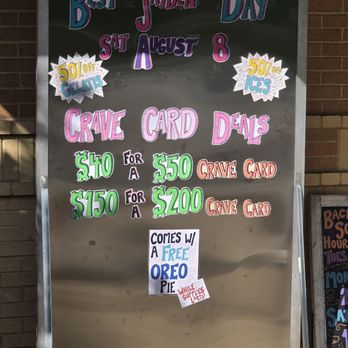 BEST FRIDAY DAY
SAT AUGUST 8
50% OFF
GELATI
50% OFF
ICES
CRAVE CARD DEALS
$40 FOR A $50 CRAVE CARD
$150 FOR A $200 CRAVE CARD
COMES W/
A FREE
OREO
PIE
WHILE
SUPPLIES
LAST!
BACK
SC
HOUR
TUES
MON